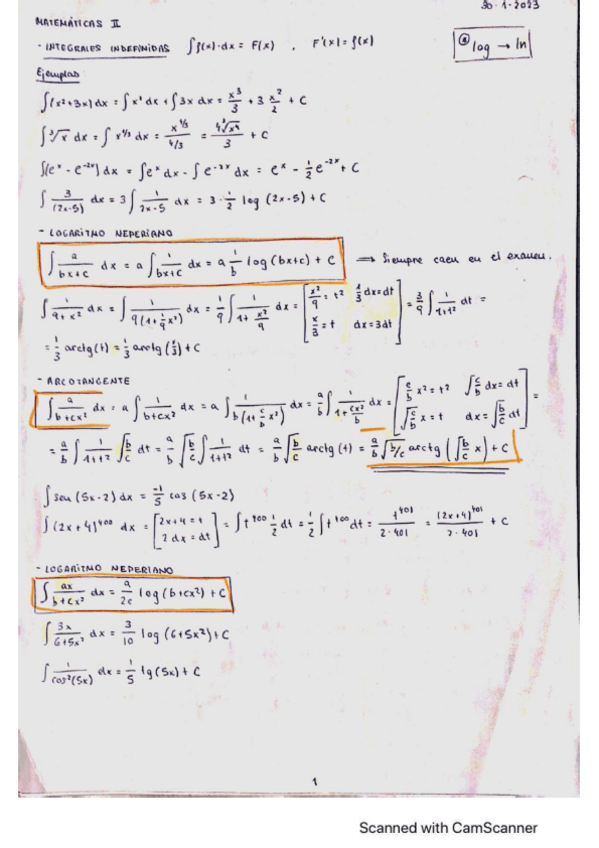 30-1-2023
MATEMÁTICAS II
- INTEGRALES INDEFINIDAS ∫f(x)·dx = F(x) , F'(x) = f(x)
log → ln
Ejemplos
∫(x²+3x)dx = ∫x²dx + ∫3x dx = x³/3 + 3 x²/2 + C
∫∛x dx = ∫x^(1/3) dx = x^(4/3)/(4/3) =
∫(e^x - e^(-2x))dx = ∫e^x dx - ∫e^(-2x) dx = e^x - 1/2 e^(-2x) + C
∫ 3/(2x-5) dx = 3∫ 1/(2x-5) dx = 3·1/2 log (2x-5) + C
- LOGARITMO NEPERIANO
∫ a/(bx+c) dx = a∫ 1/(bx+c) dx = a 1/b log(bx+c) + C → Siempre caen en el examen.
∫ 1/(9+x²) dx = ∫ 1/(9(1+1/9 x²)) dx = 1/9 ∫ 1/(1+x²/9) dx = [x²/9 = t² 1/3 dx = dt x/3 = t dx = 3dt] = 3/9 ∫ 1/(1+t²) dt =
= 1/3 arctg(t) = 1/3 arctg(x/3) + C
- ARCOTANGENTE
∫ a/(b+cx²) dx = a∫ 1/(b+cx²) dx = a∫ 1/(b(1+c/b x²)) dx = a/b ∫ 1/(1+cx²/b) dx = [c/b x² = t² √(c/b) dx = dt √(c/b) x = t dx = √(b/c) dt] =
= a/b ∫ 1/(1+t²) √(b/c) dt = a/b √(b/c) ∫ 1/(1+t²) dt = a/b √(b/c) arctg(t) = a/b √(b/c) arctg (√(b/c) x) + C
∫sen (5x-2) dx = -1/5 cos (5x-2)
∫(2x+4)^400 dx = [2x+4 = t 2dx = dt] = ∫t^400 1/2 dt = 1/2 ∫t^400 dt = t^401/(2·401) = (2x+4)^401/(2·401) + C
- LOGARITMO NEPERIANO
∫ ax/(b+cx²) dx = a/2c log(b+cx²) + C
∫ 3x/(6+5x²) dx = 3/10 log (6+5x²) + C
∫ 1/cos²(5x) dx = 1/5 tg(5x) + C
1
Scanned with CamScanner